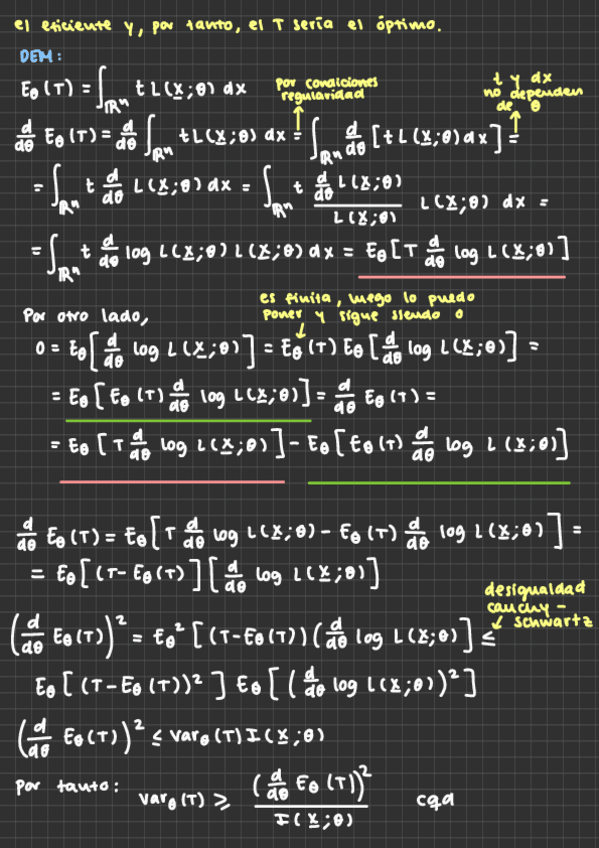 el eficiente y, por tanto, el T sería el óptimo.
DEM:
E_θ(T) = ∫_ℝⁿ t L(x̲;θ) dx
por condiciones regularidad
t y dx no dependen de θ
d/dθ E_θ(T) = d/dθ ∫_ℝⁿ t L(x̲;θ) dx = ∫_ℝⁿ d/dθ [t L(x̲;θ) dx] =
= ∫_ℝⁿ t d/dθ L(x̲;θ) dx = ∫_ℝⁿ t (d/dθ L(x̲;θ))/(L(x̲;θ)) L(x̲;θ) dx =
= ∫_ℝⁿ t d/dθ log L(x̲;θ) L(x̲;θ) dx = E_θ[T d/dθ log L(x̲;θ)]
Por otro lado,
es finita, luego lo puedo poner y sigue siendo 0
0 = E_θ[d/dθ log L(x̲;θ)] = E_θ(T) E_θ[d/dθ log L(x̲;θ)] =
= E_θ[E_θ(T) d/dθ log L(x̲;θ)] = d/dθ E_θ(T) =
= E_θ[T d/dθ log L(x̲;θ)] - E_θ[E_θ(T) d/dθ log L(x̲;θ)]
d/dθ E_θ(T) = E_θ[T d/dθ log L(x̲;θ) - E_θ(T) d/dθ log L(x̲;θ)] =
= E_θ[(T - E_θ(T)][d/dθ log L(x̲;θ)]
desigualdad cauchy - schwartz
(d/dθ E_θ(T))² = E_θ²[(T - E_θ(T))(d/dθ log L(x̲;θ)] ≤
E_θ[(T - E_θ(T))²] E_θ[(d/dθ log L(x̲;θ))²]
(d/dθ E_θ(T))² ≤ Var_θ(T) I(x̲;θ)
Por tanto: Var_θ(T) ≥ (d/dθ E_θ(T))²/I(x̲;θ) cqd